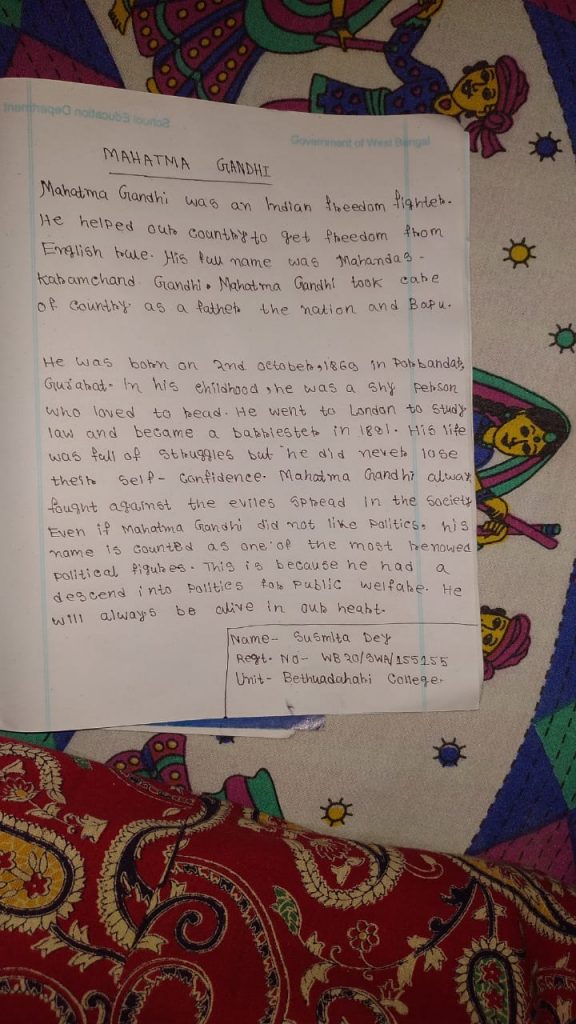 School Education Department
Government of West Bengal
MAHATMA GANDHI
Mahatma Gandhi was an Indian freedom fighter.
He helped our country to get freedom from
English rule. His full name was Mahandas-
karamchand Gandhi. Mahatma Gandhi took care
of country as a father the nation and Bapu.
He was born on 2nd october, 1869 in Porbandar,
Gujarat. In his childhood, he was a shy person
who loved to read. He went to London to study
law and became a barriester in 1891. His life
was full of struggles but he did never lose
their self-confidence. Mahatma Gandhi alway
fought against the eviles spread in the society
Even if Mahatma Gandhi did not like politics, his
name is counted as one of the most renowed
political figures. This is because he had a
descend into politics for public welfare. He
will always be alive in our heart.
Name- Susmita Dey
Regt. No- WB20/SWA/155155
Unit- Bethuadahari College.